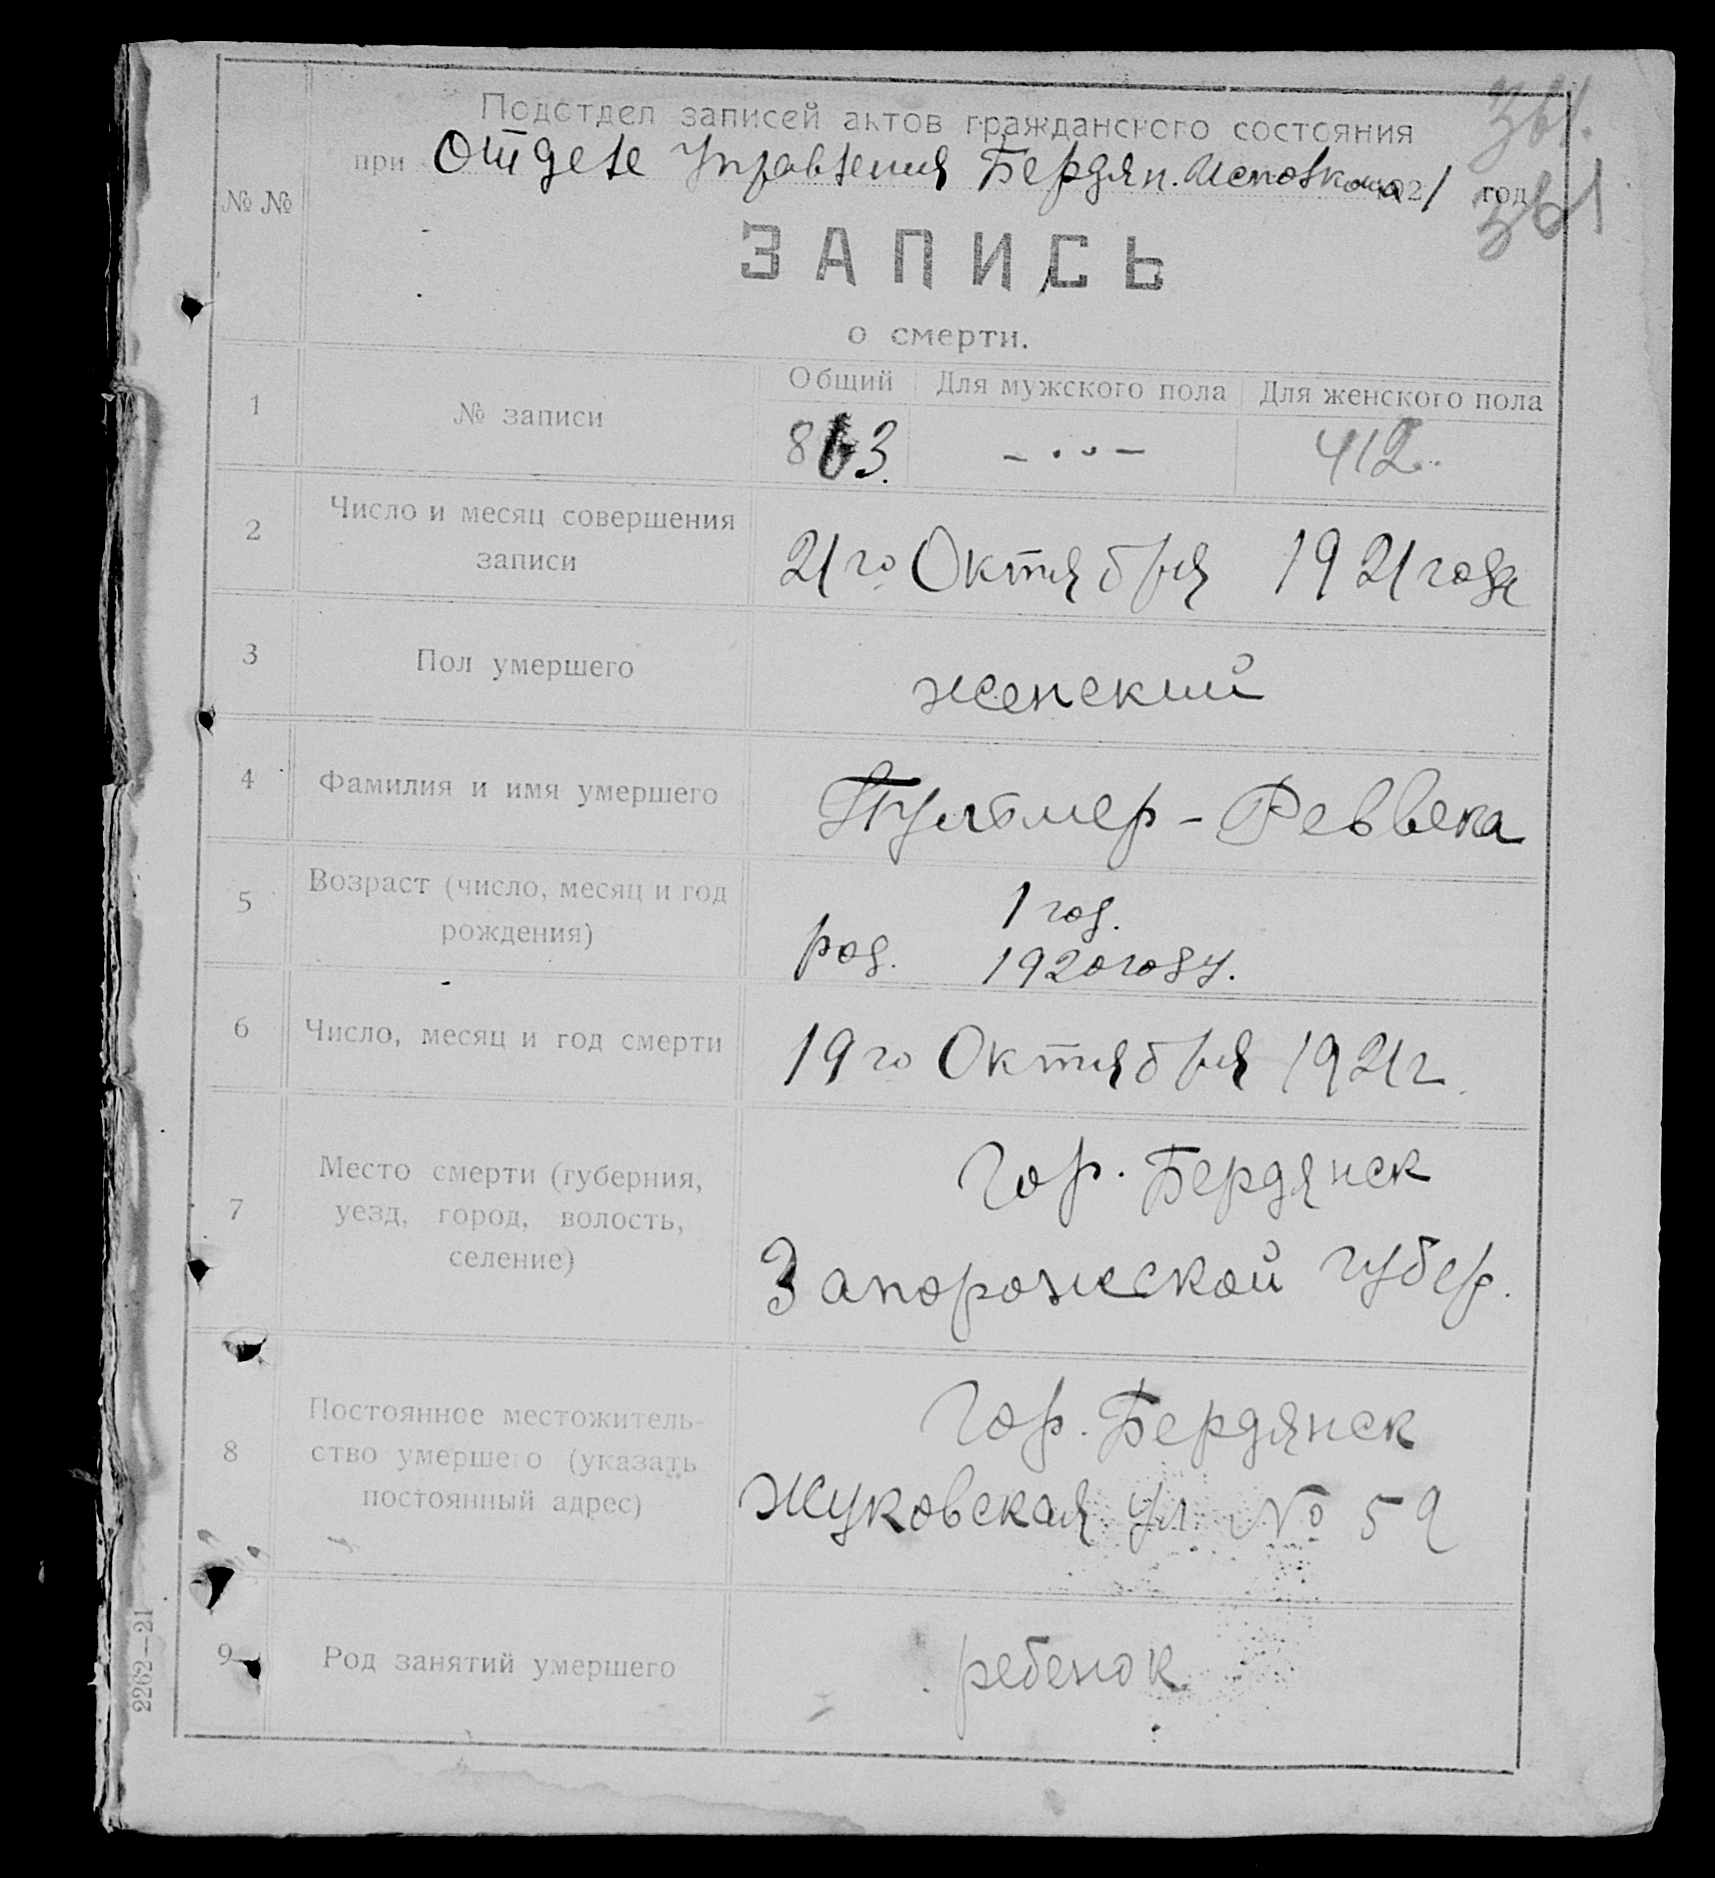 361.
Подотдел записей актов гражданского состояния
при Отделе Управления Бердян. Исполкома 1921 год
361
№ №
ЗАПИСЬ
о смерти.
1 № записи Общий Для мужского пола Для женского пола
863. – · ᴗ – 412
2 Число и месяц совершения
записи
21го Октября 1921 года
3 Пол умершего женский
4 Фамилия и имя умершего Реввека
5 Возраст (число, месяц и год
рождения)
1 год.
род. 1920 году.
6 Число, месяц и год смерти 19го Октября 1921 г.
7 Место смерти (губерния,
уезд, город, волость,
селение)
Гор. Бердянск
Запорожской губер.
8 Постоянное местожитель-
ство умершего (указать
постоянный адрес)
Гор. Бердянск
Жуковская ул. № 59
9 Род занятий умершего ребенок
2262—21